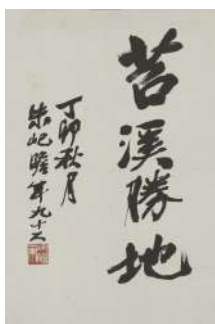 苕溪勝地
丁卯秋月
朱屺瞻年九十六